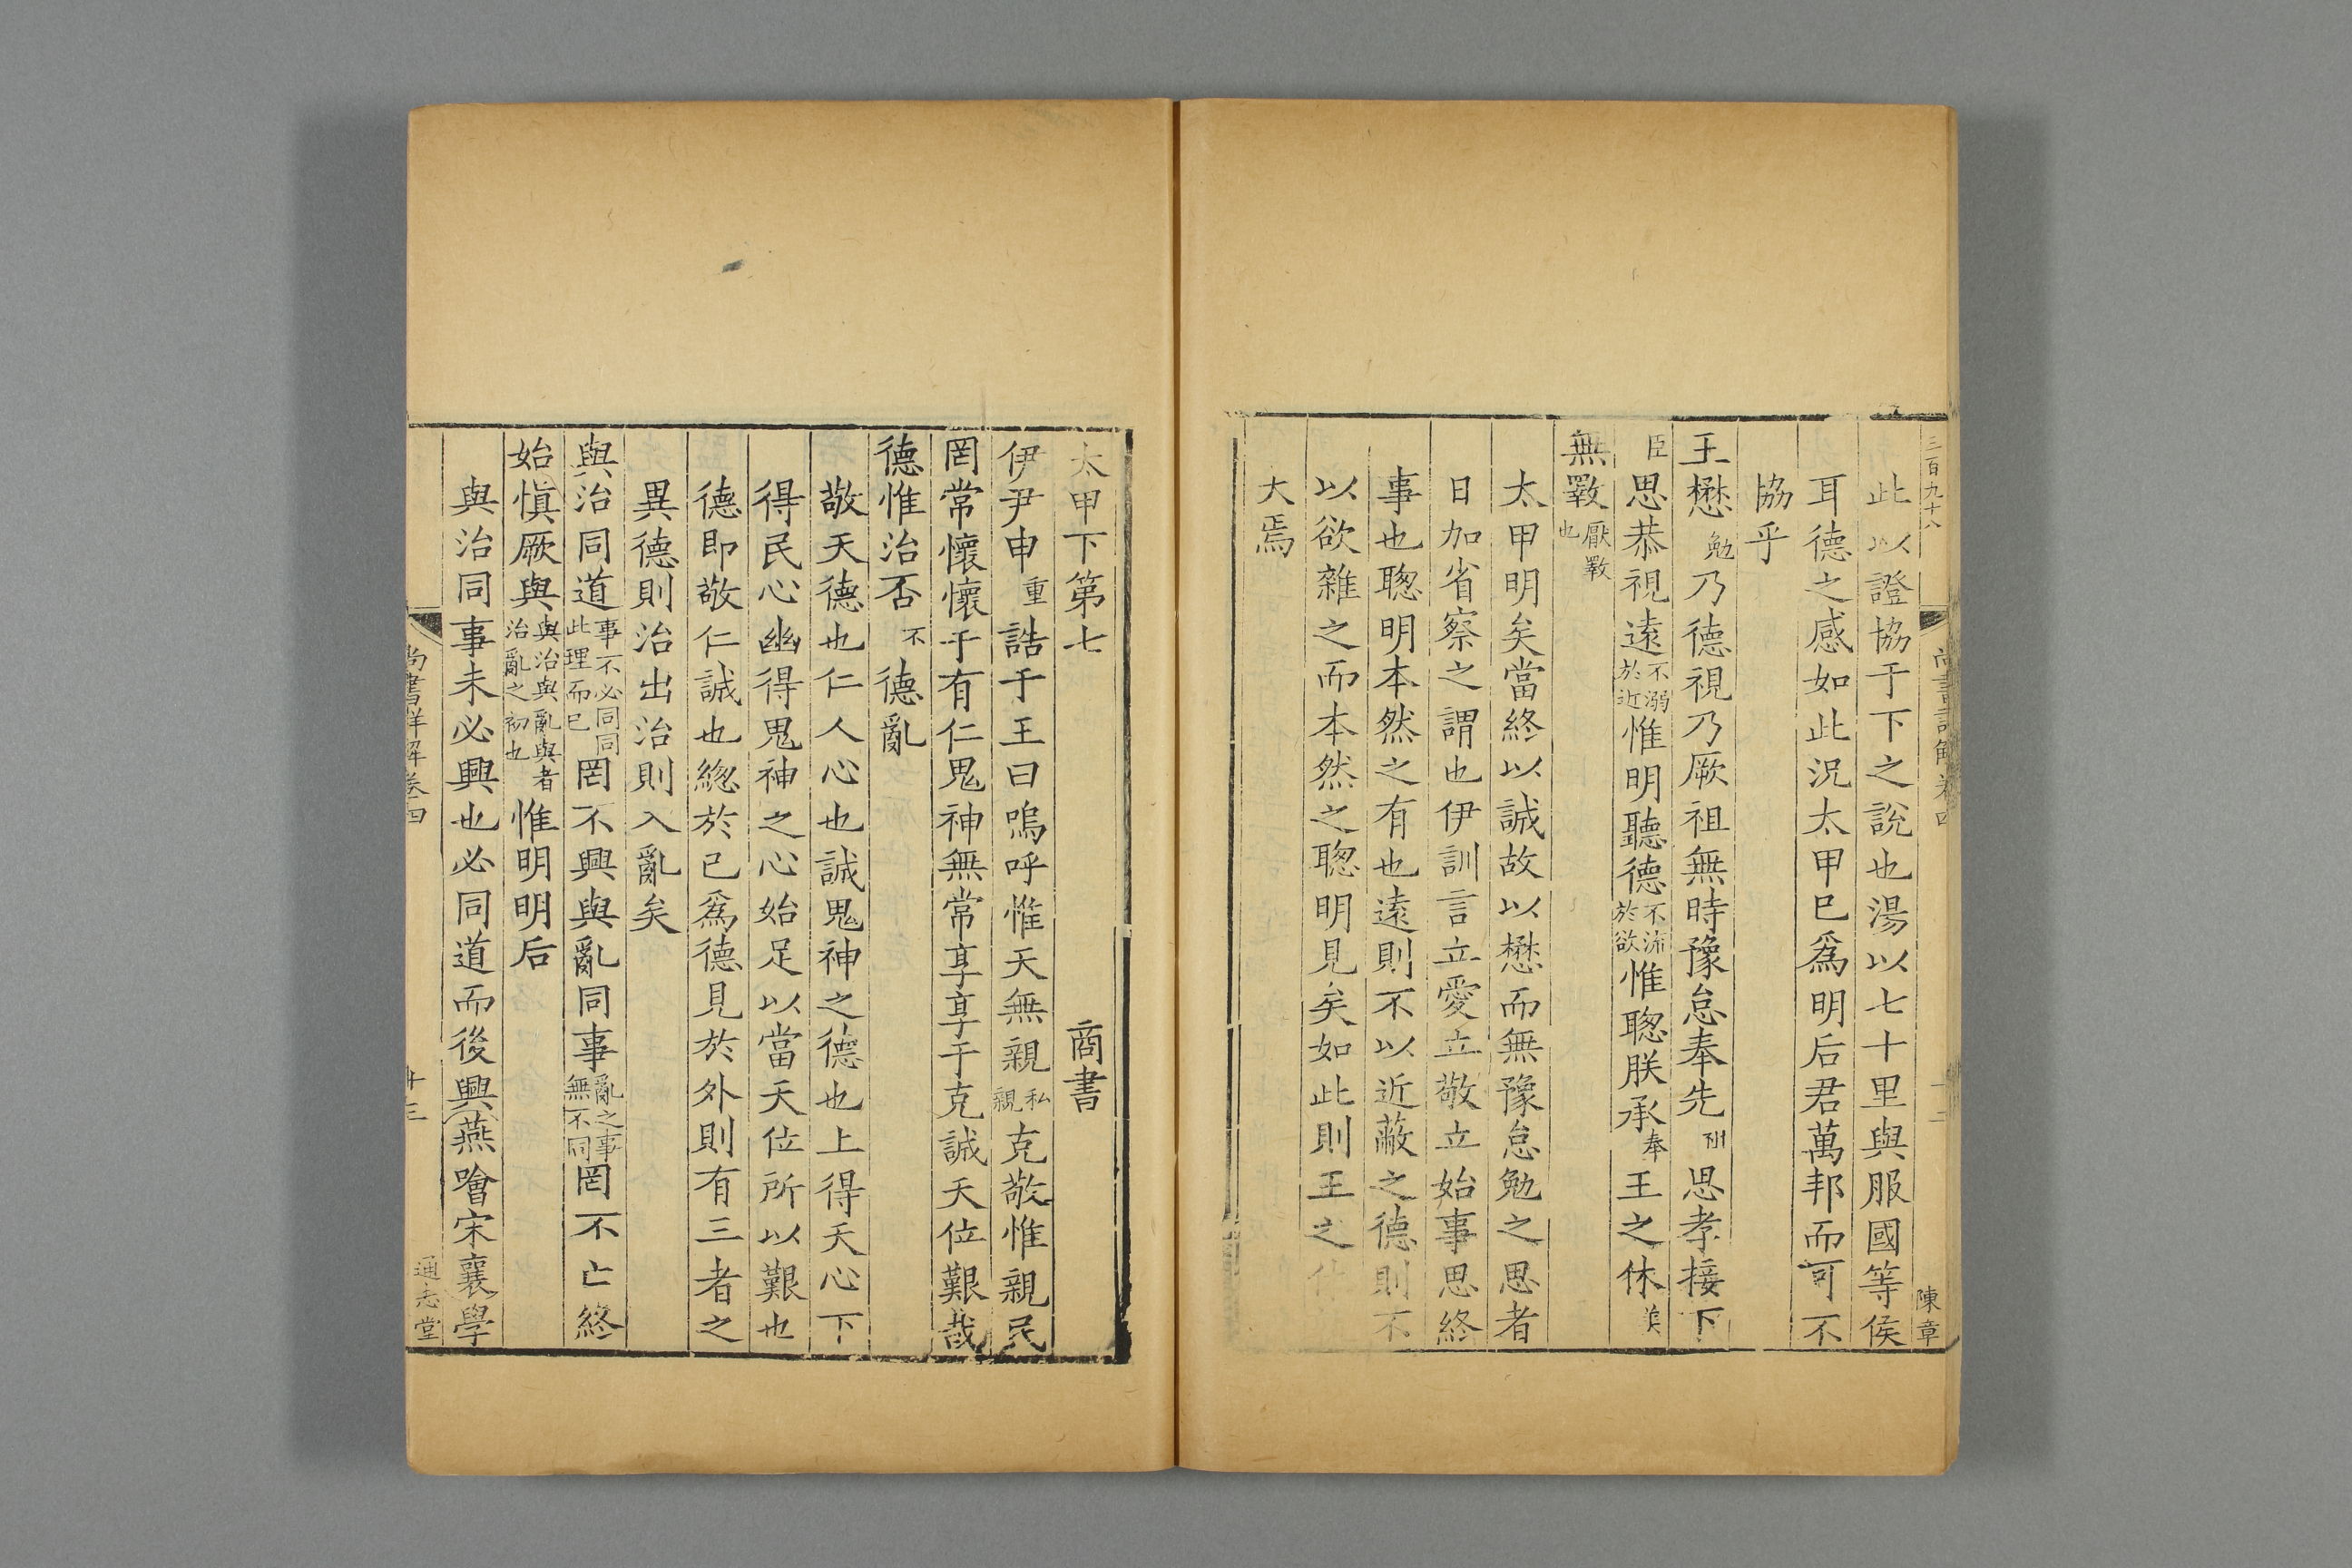 三百九十八
尚書詳解卷四
陳章
此以證協于下之說也湯以七十里與服國等侯
耳德之感如此況太甲已爲明后君萬邦而可不
協乎
王懋勉乃德視乃厥祖無時豫怠奉先思孝接下
臣思恭視遠不溺於近惟明聽德不流於欲惟聦朕承奉王之休美
無斁厭斁也
太甲明矣當終以誠故以懋而無豫怠勉之思者
日加省察之謂也伊訓言立愛立敬立始事思終
事也聦明本然之有也遠則不以近蔽之德則不
以欲雜之而本然之聦明見矣如此則王之休
大焉
太甲下第七 商書
伊尹申重誥于王曰嗚呼惟天無親私親克敬惟親民
罔常懷懷于有仁鬼神無常享享于克誠天位艱哉
德惟治否不德亂
敬天德也仁人心也誠鬼神之德也上得天心下
得民心幽得鬼神之心始足以當天位所以艱也
德即敬仁誠也緫於已爲德見於外則有三者之
異德則治出治則入亂矣
與治同道事不必同同此理而已罔不興與亂同事亂之事無不同罔不亡終
始慎厥與與治與亂與者治亂之初也惟明明后
與治同事未必興也必同道而後興燕噲宋襄學
尚書詳解卷四
十三
通志堂